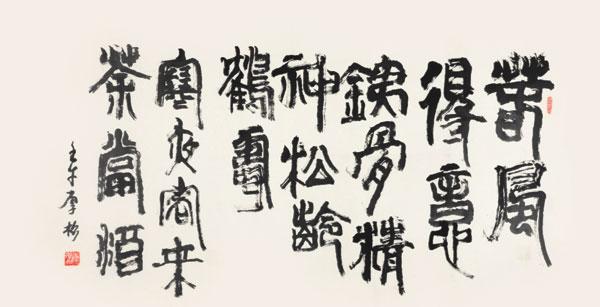 春風
得意
銕骨精
神松齡
鶴壽
寒夜客來
茶當酒
壬午厚